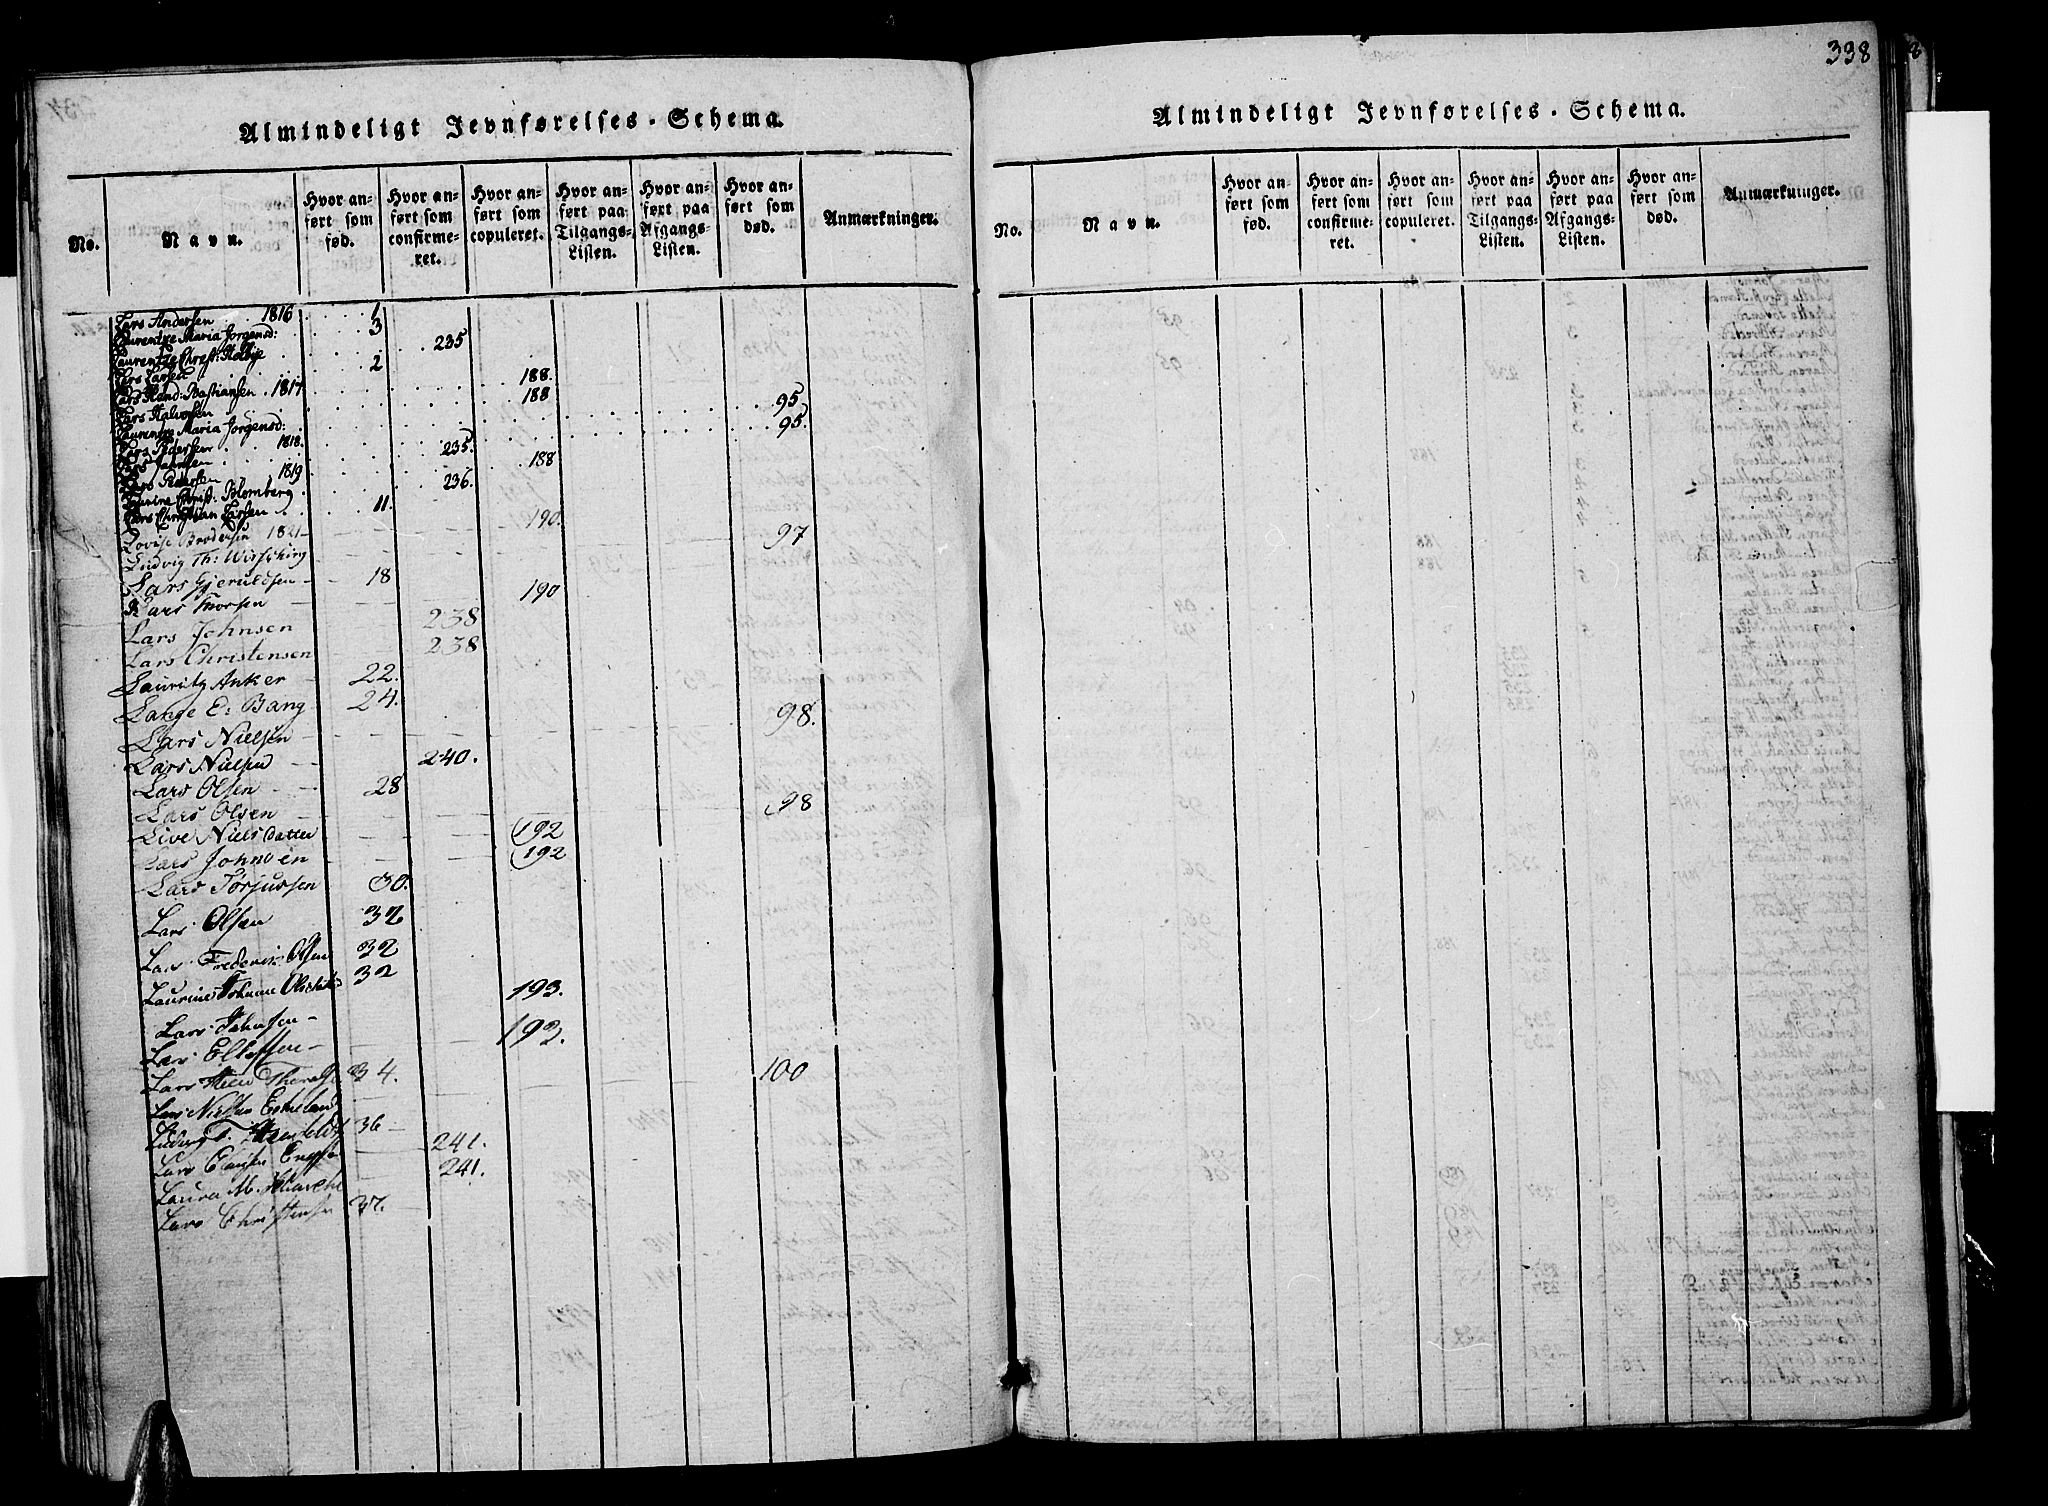 338
Almindeligt Jevnførelses-Schema.
No.
Navn.
Hvor anført som fød.
Hvor anført som confirmeret.
Hvor anført som copuleret.
Hvor anført paa Tilgangs-Listen.
Hvor anført paa Afgangs-Listen.
Hvor anført som død.
Anmærkninger.
Lars Andersen . . 1816 . . . 1
Laurentze Maria Jørgensd: . . 3
Laurentze Christ: Holbye . . . 235
Lars Larsen . . 2
Lars Hand: Bastiansen . 1817 . . . 188.
Lars Halvorsen . . . 188
Laurentze Maria Jørgensd: . . . 95
Lars Pedersen . . 1818. . . . 95.
Lars Jahnsen . . . 235.
Lars Pedersen . 1819 . . . 188
Laurine Christ: Blomberg . . . 236.
Lars Christian Larsen . . 11.
Lovise Brodersen 1821 — 190.
Ludvig Th: Wissiking 97
Lars Gjeruldsen — 18
Lars Thorsen 190
Lars Johnsen 238
Lars Christensen 238
Lauritz Anker — 22.
Lange E: Bang 24.
Lars Nielsen — 98.
Lars Nielsen 240.
Lars Olsen — 28
Lars Olsen 98
Live Nielsdatter 192
Lars Johnsen 192
Lars Torjussen 30.
Lars Olsen 32
Lars Frederik Olsen 32
Laurine Johanne 32
Lars Jahnsen — 193.
Lars Ellefsen — 193.
Lars 34.
Lars Nielsen Eskeland 100
Ludvig T. 36 —
Lars Clausen 241.
Laura M. 241.
Lars Christensen 37.
Almindeligt Jevnførelses-Schema.
No.
Navn.
Hvor anført som fød.
Hvor anført som confirmeret.
Hvor anført som copuleret.
Hvor anført paa Tilgangs-Listen.
Hvor anført paa Afgangs-Listen.
Hvor anført som død.
Anmærkninger.